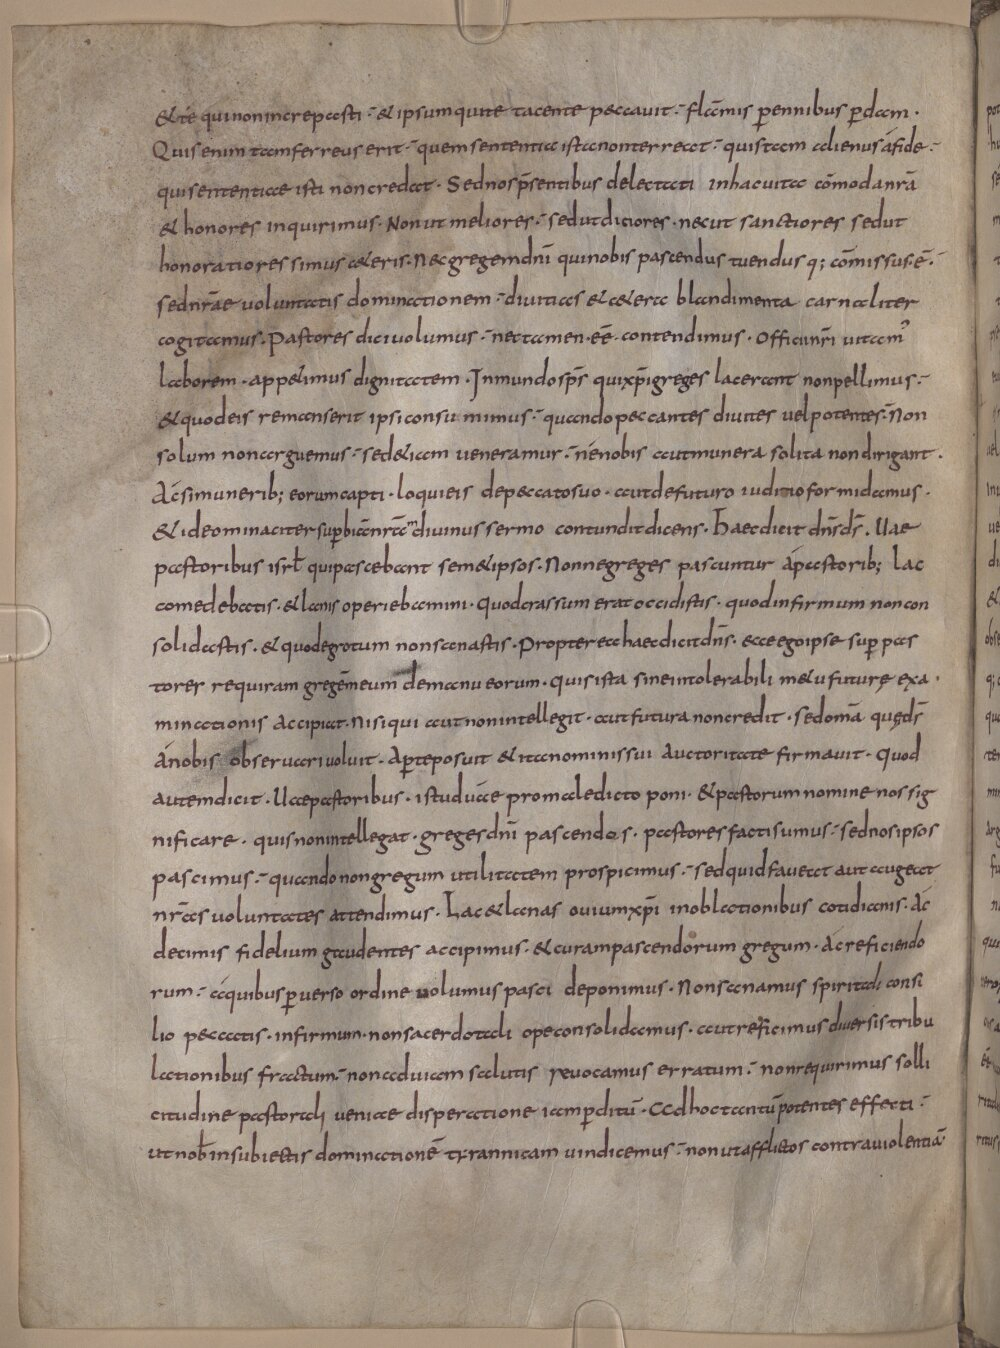 & te qui non increpasti · & ipsum qui te tacente peccauit · flāmis p̄ennibus p̄dam ·
Quis enim tam ferreus erit · quem sententia ista non terreat · quis tam alienus á fide ·
qui sententiae isti non credat · Sed nos p̄sentibus delectati in hac uita cōmoda nr̄a
& honores inquirimus · Non ut meliores · sed ut ditiores · nec ut sanctiores sed ut
honoratiores simus c&eris · Nec gregem dn̄i qui nobis pascendus tuendusq; cōmissus ē ·
sed nr̄ae uoluntatis dominationem · diuitias & c&era blandimenta carnaliter
cogitamus · Pastores dici uolumus · nec tamen eē contendimus · Officii nr̄i uitam'
laborem · app&imus dignitatem · Inmundos sp̄s qui xp̄i greges lacerant non pellimus ·
& quod eis remanserit ipsi consumimus · quando peccantes diuites uel potentes · Non
solum non arguemus · sed & iam ueneramur · ne nobis aut munera solita non dirigant ·
Ac si munerib; eorum capti · loqui eis de peccato suo · aut de futuro iuditio formidamus ·
& ideo minaciter sup̄biā nr̄ā diuinus sermo contundit dicens · Haec dicit dn̄s ds̄ · Uae
pastoribus isrl̄ qui pascebant sem&ipsos · Nonne greges pascuntur á pastorib; lac
comedebatis · & lanis operiebamini · Quod crassum erat occidistis · quod infirmum non con
solidastis · & quod egrotum non sanastis · Propterea haec dicit dn̄s · ecce ego ipse sup̄ pas
tores requiram gregē meum de manu eorum · Quis ista sine intolerabili m&u futurę exa ·
minationis accipiat · Nisi qui aut non intellegit · aut futura non credit · sed omā quę ds̄
á nobis obseruari uoluit · Ap̄te posuit & ita nominis sui auctoritate firmauit · Quod
autem dicit · Uae pastoribus · istud uae pro maledicto poni · & pastorum nomine nos sig
nificare · quis non intellegat · greges dn̄i pascendos · pastores facti sumus · sed nos ipsos
pascimus · quando non gregum utilitatem prospicimus · sed quid faueat aut augeat
nr̄as uoluntates attendimus · Lac & lanas ouium xp̄i in oblationibus cotidianis · Ac
decimis fidelium gaudentes accipimus · & curam pascendorum gregum · Ac reficiendo
rum · á quibus p̄uerso ordine uolumus pasci deponimus · Non sanamus spiritali consi
lio peccatis · infirmum · non sacerdotali ope consolidamus · aut reficimus diuersis tribu
lationibus fractum · non ad uiam salutis reuocamus erratum · non requirimus solli
citudine pastorali ueniae disperatione iam p̄ditū · Ad hoc tantū potentes effecti ·
ut nob̄ in subiectis dominationē tyrannicam uindicemus · non ut afflictos contra uiolentiā